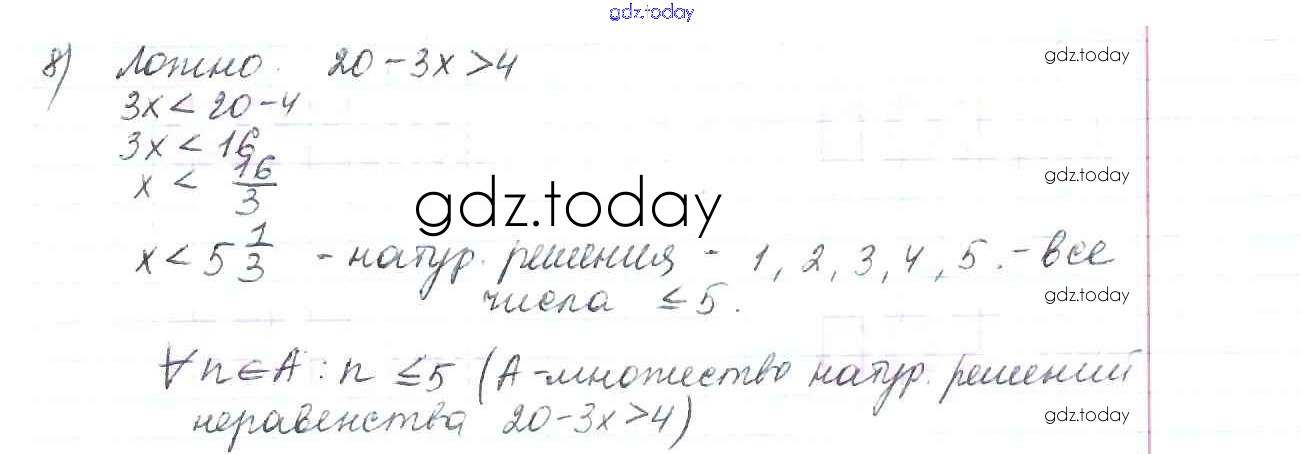 gdz.today
8) Ложно. 20-3x>4 gdz.today
3x<20-4
3x<16
x < 16/3 gdz.today
gdz.today
x<5 1/3 - натур. решения - 1, 2, 3, 4, 5. - все
числа ≤5. gdz.today
∀n∈A : n ≤5 (A-множество натур. решений
неравенства 20-3x>4) gdz.today